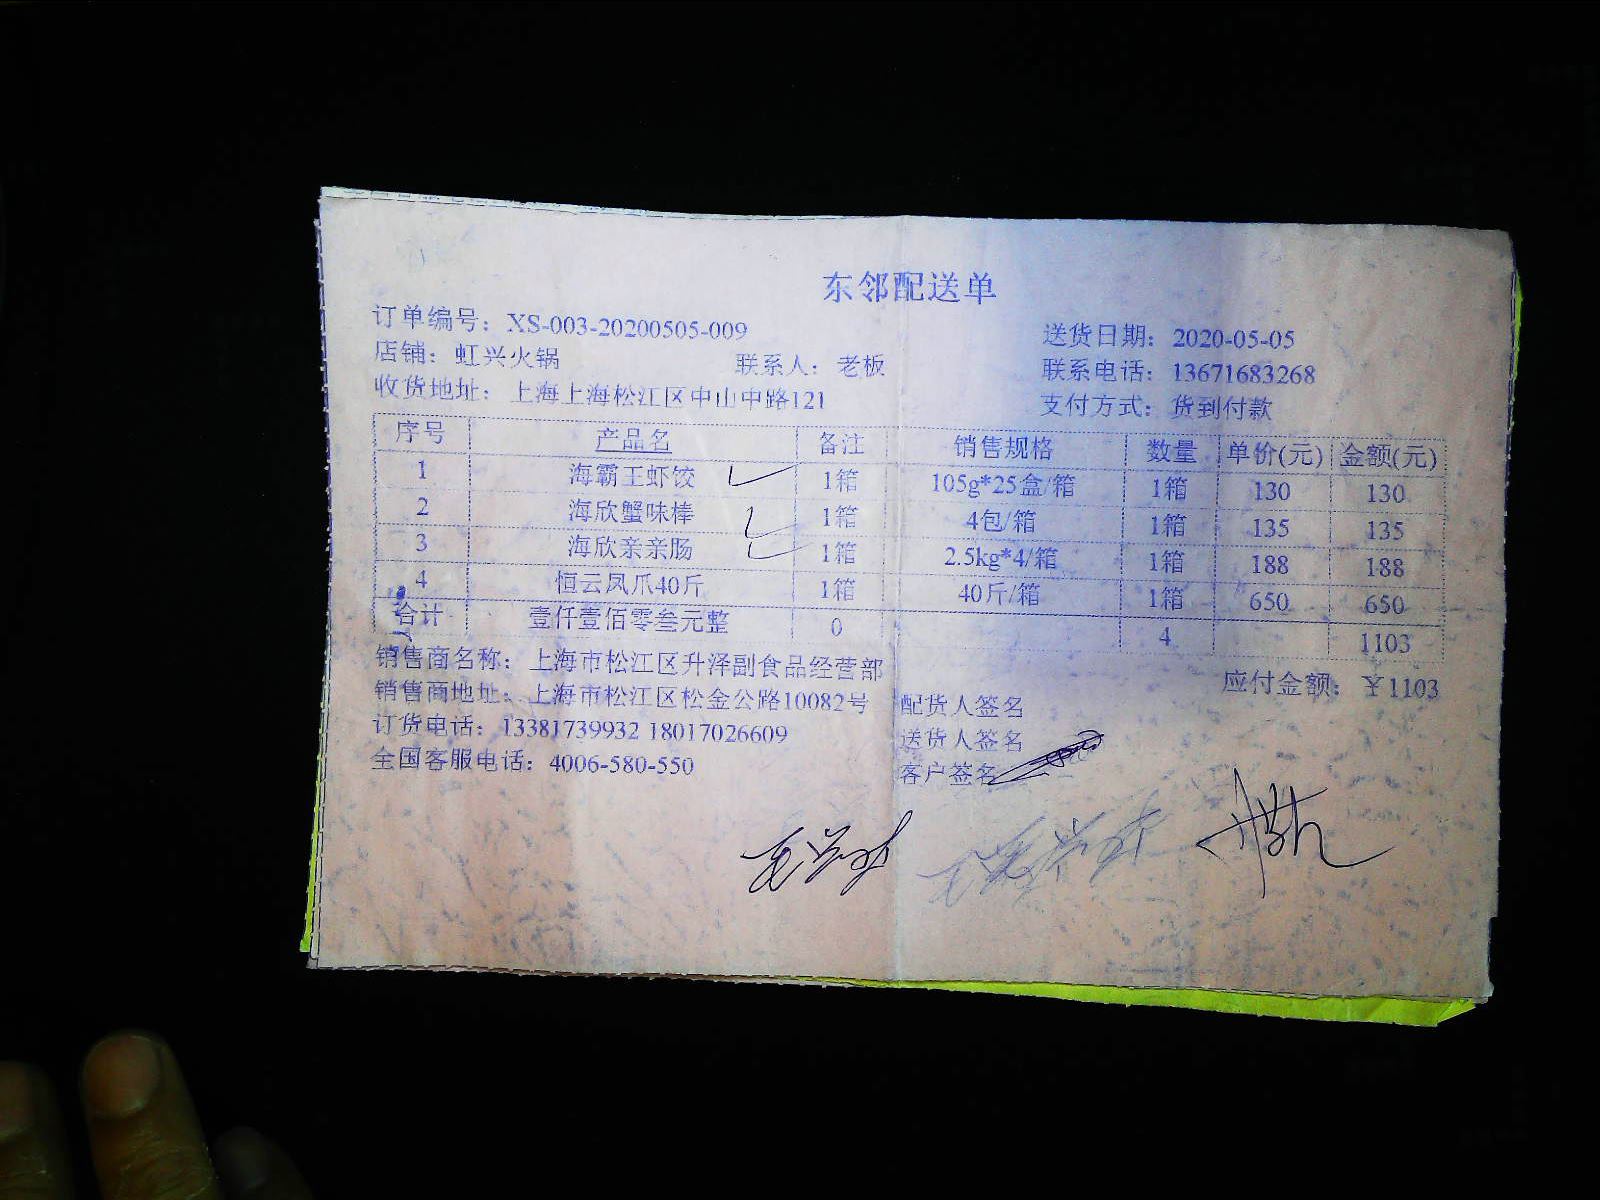 东邻配送单
订单编号：XS-003-20200505-009 送货日期：2020-05-05
店铺：虹兴火锅 联系人：老板 联系电话：13671683268
收货地址：上海上海松江区中山中路121 支付方式：货到付款
序号 产品名 备注 销售规格 数量 单价(元) 金额(元)
1 海霸王虾饺 1箱 105g*25盒/箱 1箱 130 130
2 海欣蟹味棒 1箱 4包/箱 1箱 135 135
3 海欣亲亲肠 1箱 2.5kg*4/箱 1箱 188 188
4 恒云凤爪40斤 1箱 40斤/箱 1箱 650 650
合计 壹仟壹佰零叁元整 0 4 1103
销售商名称：上海市松江区升泽副食品经营部 应付金额：¥1103
销售商地址：上海市松江区松金公路10082号 配货人签名
订货电话：13381739932 18017026609 送货人签名
全国客服电话：4006-580-550 客户签名